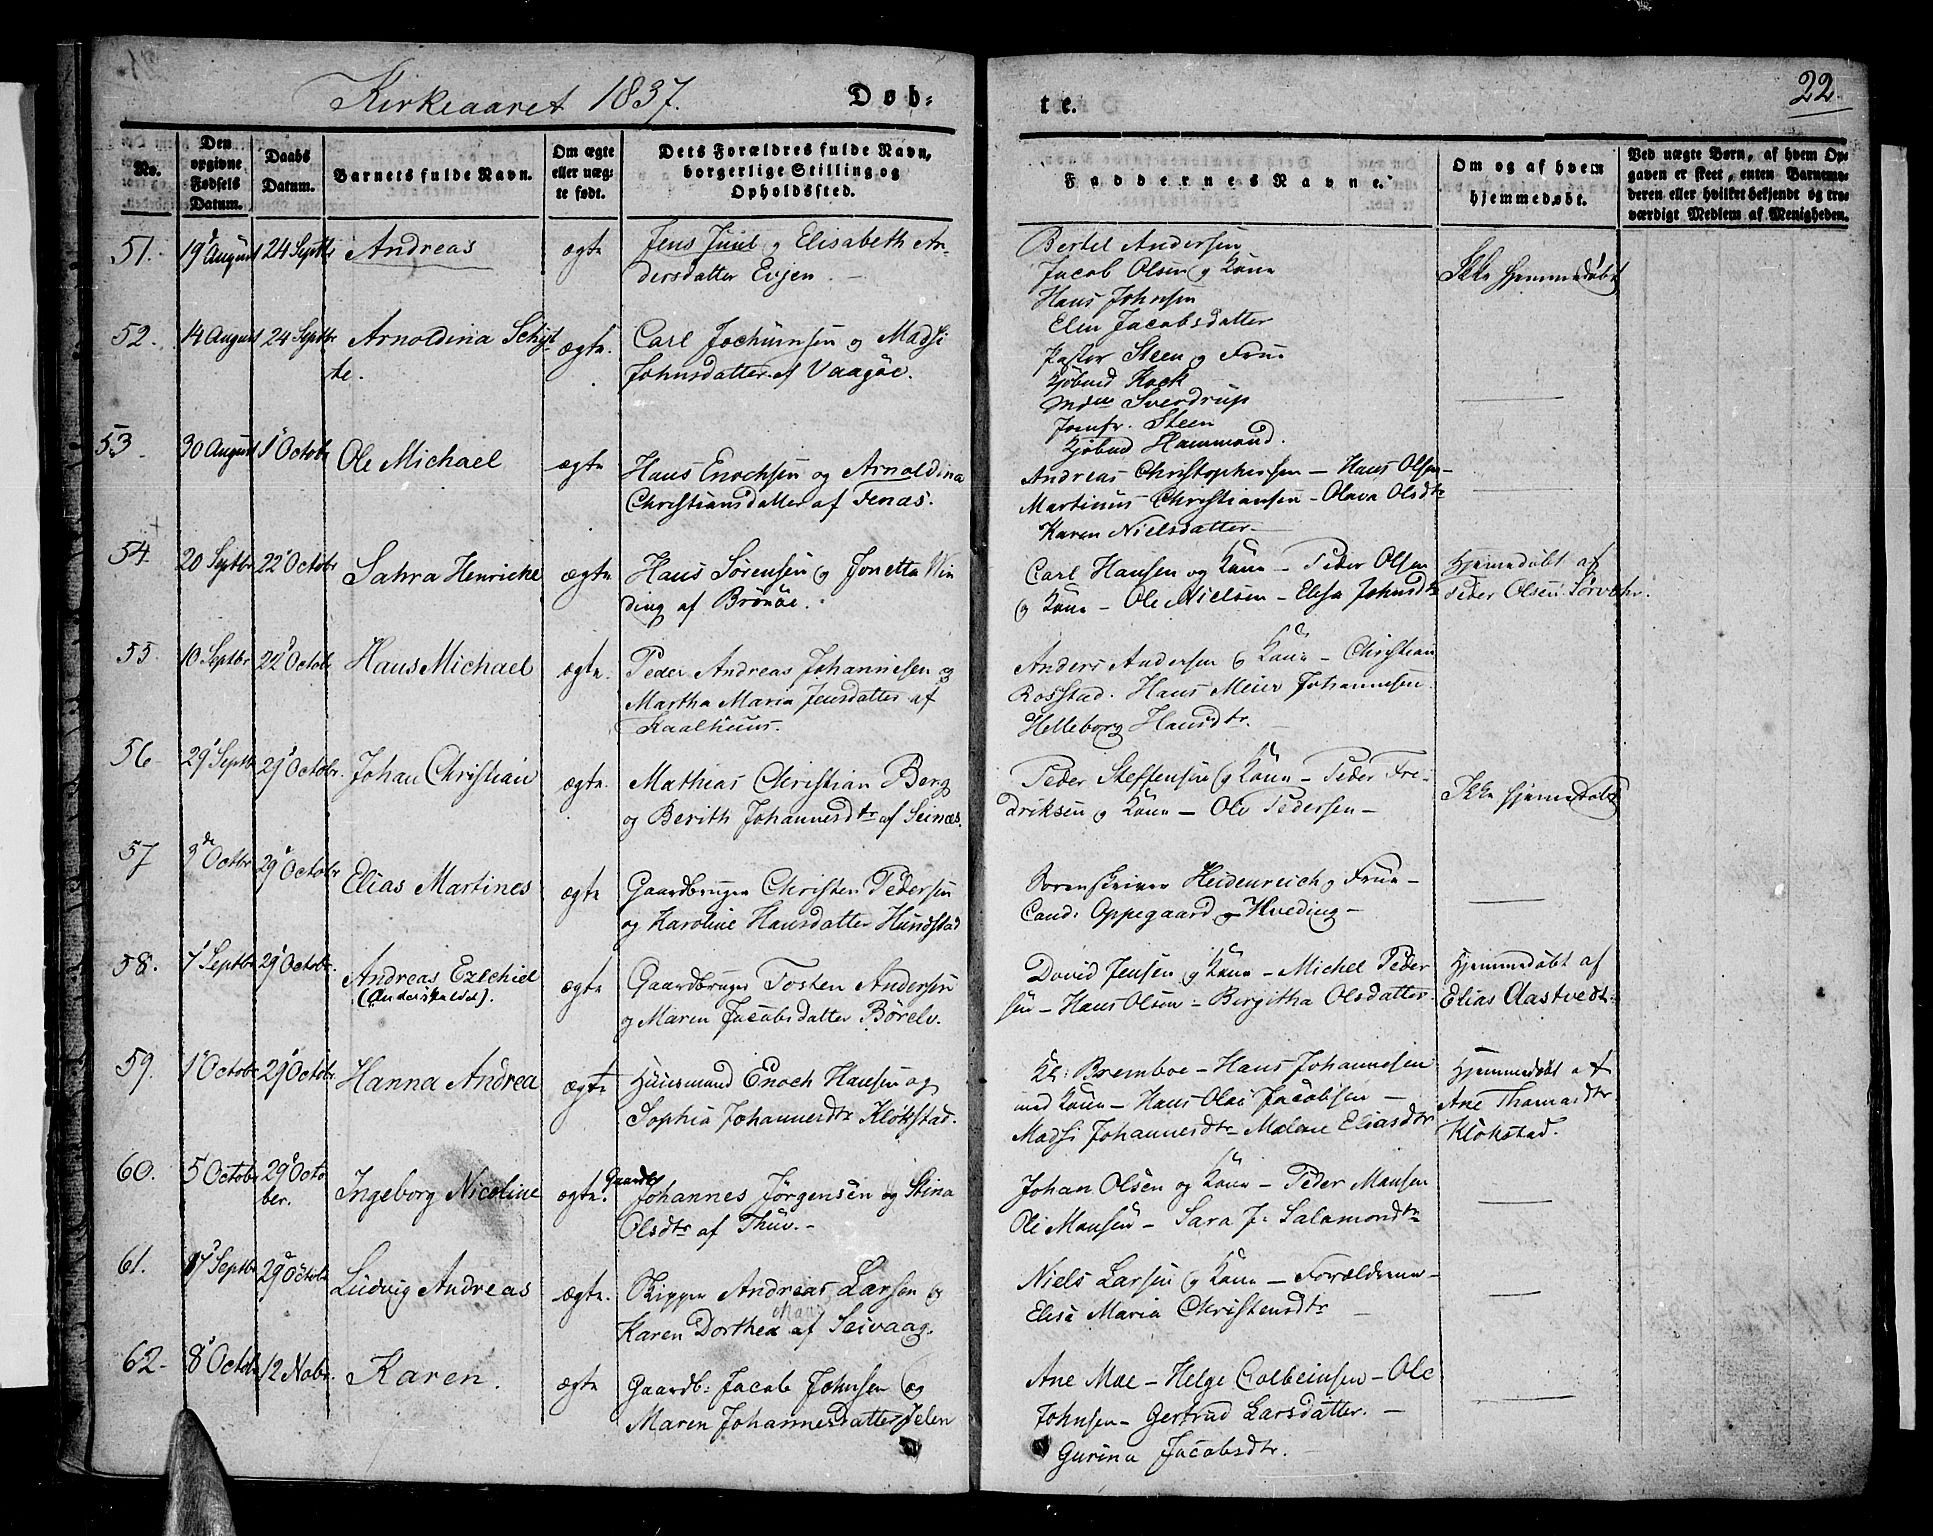 Kirkeaaret 1837. Døb-
te. 22.
No. Den opgivne Fødsels Datum. Daabs Datum. Barnets fulde Navn. Om ægte eller uægte født. Dets Forældres fulde Navn, borgerlige Stilling og Opholdssted.
Faddernes Navne. Om og af hvem hjemmedøbt. Ved uægte Børn, af hvem Opgaven er skeet, enten Barnemoderen eller hvilket bekjendt og troværdigt Medlem af Menigheden.
51. 19 August 24 Septbr Andreas ægte Jens Juul og Elisabeth An-
dersdatter Evjen. -
Bertel Andersen
Jacob Olsen og Kone
Hans Johnsen
Elen Jacobsdatter
Ikke hjemmedøbt
52. 14 August 24 Septbr Arnoldina Schyt-
te. ægte. Carl Jochumsen og Madsi
Johnsdatter af Vaagøe.
Pastor Steen og Frue
Kjøbmd Kock
Mdme Sverdrup
Jomfr. Steen
Kjøbmd Hammond.
53. 30 August 1 Octobr Ole Michael ægte Hans Enochsen og Arnoldina
Christiansdatter af Fenæs.
Andreas Christophersen - Hans Olsen -
Martinus Christiansen - Olava Olsdtr
Karen Nielsdatter -
54. 20 Septbr 22 Octobr Sahra Henricke ægte Hans Sørensen og Jonetta Win
ding af Brönöe.
Carl Hansen og Kone - Peder Olsen
og Kone - Ole Nielsen - Elisa Johnsdtr
Hjemmedøbt af
Peder Olsen
55. 10 Septbr 22 Octobr Hans Michael ægte. Peder Andreas Johannesen og
Martha Maria Jensdatter af
Anders Andersen og Kone - Christian
Rosstad. Hans Meier Johannesen.
Helleborg Hansdtr.
56. 29 Septbr 29 Octobr. Johan Christian ægte. Mathias Christian Berg
og Berith Johannesdtr af Seinæs.
Peder Steffensen og Kone - Peder Fre-
driksen og Kone - Ole Pedersen -
Ikke hjemmedøbt
57 3de Octbr 29 Octobr Elias Martines ægte Gaardbruger Christen Pedersen
og Karoline Hansdatter Hundstad
Sorenskriver Heidenreich og Frue -
Cand: Oppegaard og Hveding -
58. 7 Septbr 29 Octobr. Andreas Ezechiel ægte Gaardbruger Tosten Andersen
og Maren Jacobsdatter Börelv.
David Jensen og Kone - Michel Peder
sen - Hans Olsen - Birgitha Olsdatter.
Hjemmedøbt af
Elias Aastvedt.
59. 1 Octobr 29 Octobr Hanna Andrea ægte Huusmand Enoch Hansen og
Sophia Johannesdtr Klökstad.
Kl: Bremboe - Hans Johannesen
med Kone - Hans Olai Jacobsen -
Madsi Johannesdtr Malene Eliasdtr
Hjemmedøbt af
Ane Thomasdtr
Klökstad.
60. 5 October 29 Octo
ber. Ingeborg Nicoline ægte. Gaardb Johannes Jörgensen og Stina
Olsdtr af Thuv. -
Johan Olsen og Kone - Peder Monsen
Ole Monsen - Sara J: Salamondtr
61. 17 Septbr 29 Octobr Ludvig Andreas ægte. Skipper Andreas Larsen og
Karen Dorthea af Seivaag.
Niels Larsen og Kone - Forældrene -
Elise Maria Christensdtr -
62. 8 Octobr 12 Nobr. Karen. ægte Gaardb: Jacob Johnsen og
Maren Johannesdatter Jelen
Ane Moe - Helge Colbeinsen - Ole
Johnsen - Gertrud Larsdatter. -
Gurina Jacobsdtr.